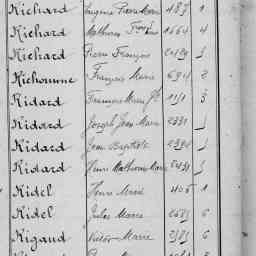 Richard Eugène Pierre Marie 487 1
Richard Mathurin 1664 4
Richard Pierre François
Richomme François Marie 694 2
Ridard François Marie 3
Ridard Joseph Jean Marie 2331
Ridard Jean Baptiste
Ridard Henri Mathurin Marie 2431
Ridel Henri Marie 405 1
Ridel Jules Marie 2681 6
Rigaud Victor Marie 2381 6